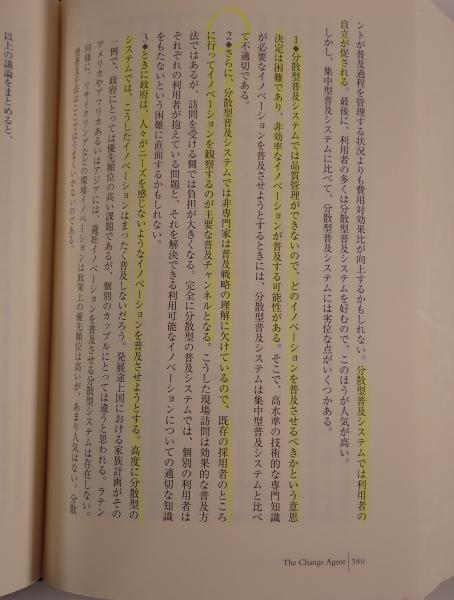 ントが普及過程を管理する状況よりも費用対効果比が向上するかもしれない。分散型普及システムでは利用者の
自立が促される。最後に、利用者の多くは分散型普及システムを好むので、このほうが人気が高い。
しかし、集中型普及システムに比べて、分散型普及システムには劣位な点がいくつかある。
1◆分散型普及システムでは品質管理ができないので、どのイノベーションを普及させるべきかという意思
決定は困難であり、非効率なイノベーションが普及する可能性がある。そこで、高水準の技術的な専門知識
が必要なイノベーションを普及させようとするときには、分散型普及システムは集中型普及システムと比べ
て不適切である。
2◆さらに、分散型普及システムでは非専門家は普及戦略の理解に欠けているので、既存の採用者のところ
に行ってイノベーションを観察するのが主要な普及チャンネルとなる。こうした現場訪問は効果的な普及方
法ではあるが、訪問を受ける側では負担が大きくなる。完全に分散型の普及システムでは、個別の利用者は
それぞれの利用者が抱えている問題と、それを解決できる利用可能なイノベーションについての適切な知識
をもたないという困難に直面するかもしれない。
3◆ときに政府は、人々がニーズを感じないようなイノベーションを普及させようとする。高度に分散型の
システムでは、こうしたイノベーションはまったく普及しないだろう。発展途上国における家族計画がその
一例で、政府にとっては優先順位の高い課題であるが、個別のカップルにとっては違うと思われる。ラテン
アメリカやアフリカあるいはアジアには、避妊イノベーションを普及させる分散型システムは存在しない。
同様に、リサイクリングなどの環境イノベーションは政策上の優先順位は高いが、あまり人気はない。分散
型普及手法はここではうまくいかないのである。
以上の議論をまとめると、
The Change Agent | 380